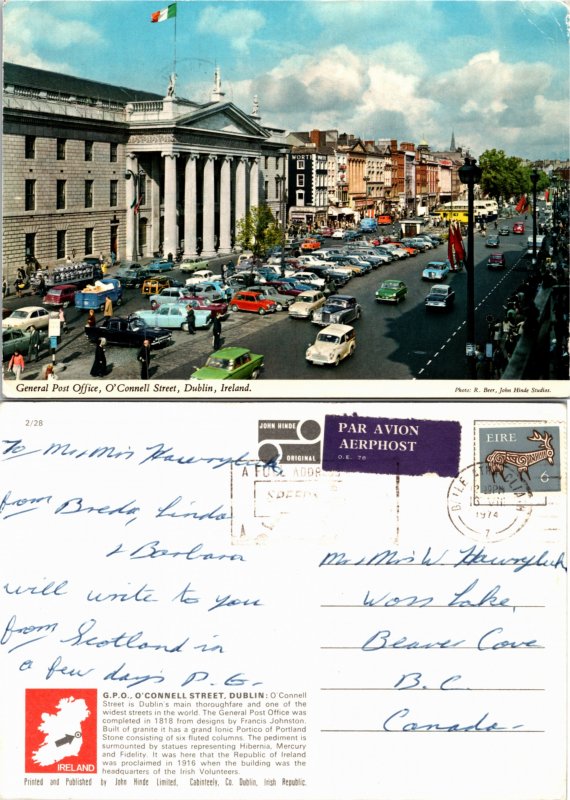 WORT
General Post Office, O'Connell Street, Dublin, Ireland
Photo: R. Beer, John Hinde Studios.
2/28
JOHN HINDE
ORIGINAL
PAR AVION
AERPHOST
O.E. 76
EIRE
6
BAILE ÁTHA CLIATH
1974
7
A POST
SPEEDS
To Mr. Mrs Hawryluk
from Breda, Linda
& Barbara
will write to you
from Scotland in
a few days P.G.
Mr. Mrs W. Hawryluk
Woss Lake,
Beaver Cove
B.C.
Canada
IRELAND
G.P.O., O'CONNELL STREET, DUBLIN: O'Connell
Street is Dublin's main thoroughfare and one of the
widest streets in the world. The General Post Office was
completed in 1818 from designs by Francis Johnston.
Built of granite it has a grand Ionic Portico of Portland
Stone consisting of six fluted columns. The pediment is
surmounted by statues representing Hibernia, Mercury
and Fidelity. It was here that the Republic of Ireland
was proclaimed in 1916 when the building was the
headquarters of the Irish Volunteers.
Printed and Published by John Hinde Limited, Cabinteely, Co. Dublin, Irish Republic.